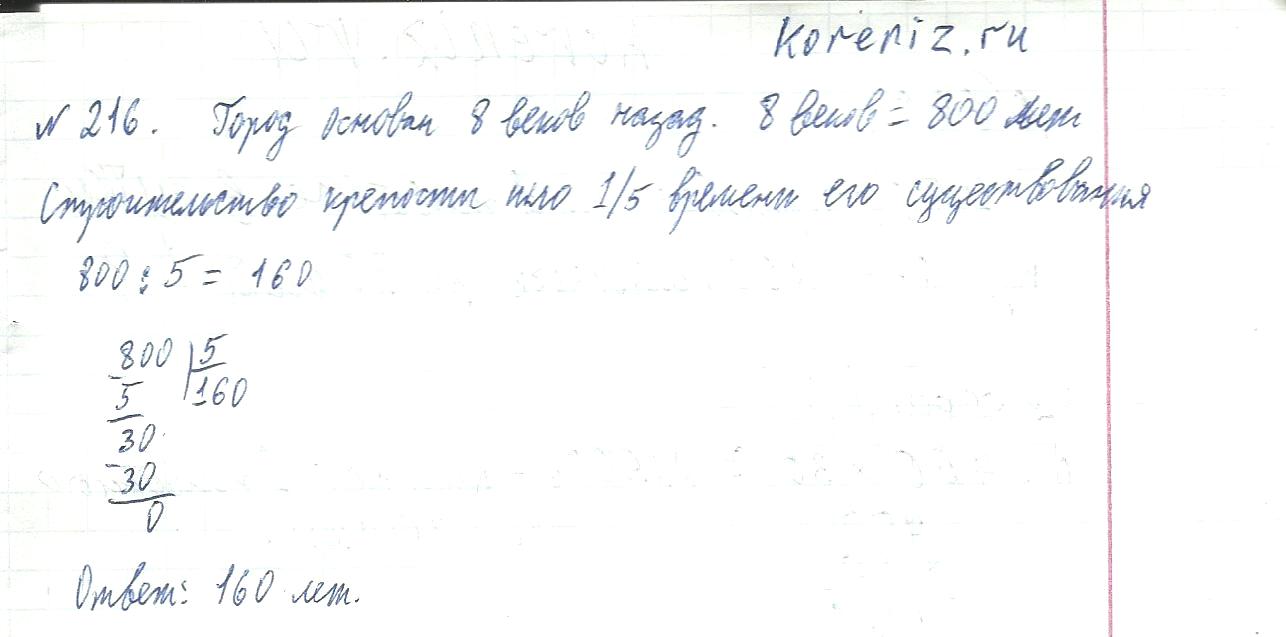 Koreniz.ru
№ 216. Город основан 8 веков назад. 8 веков = 800 лет
Строительство крепости шло 1/5 времени его существования
800 : 5 = 160
800 | 5
5 160
30
30
0
Ответ: 160 лет.